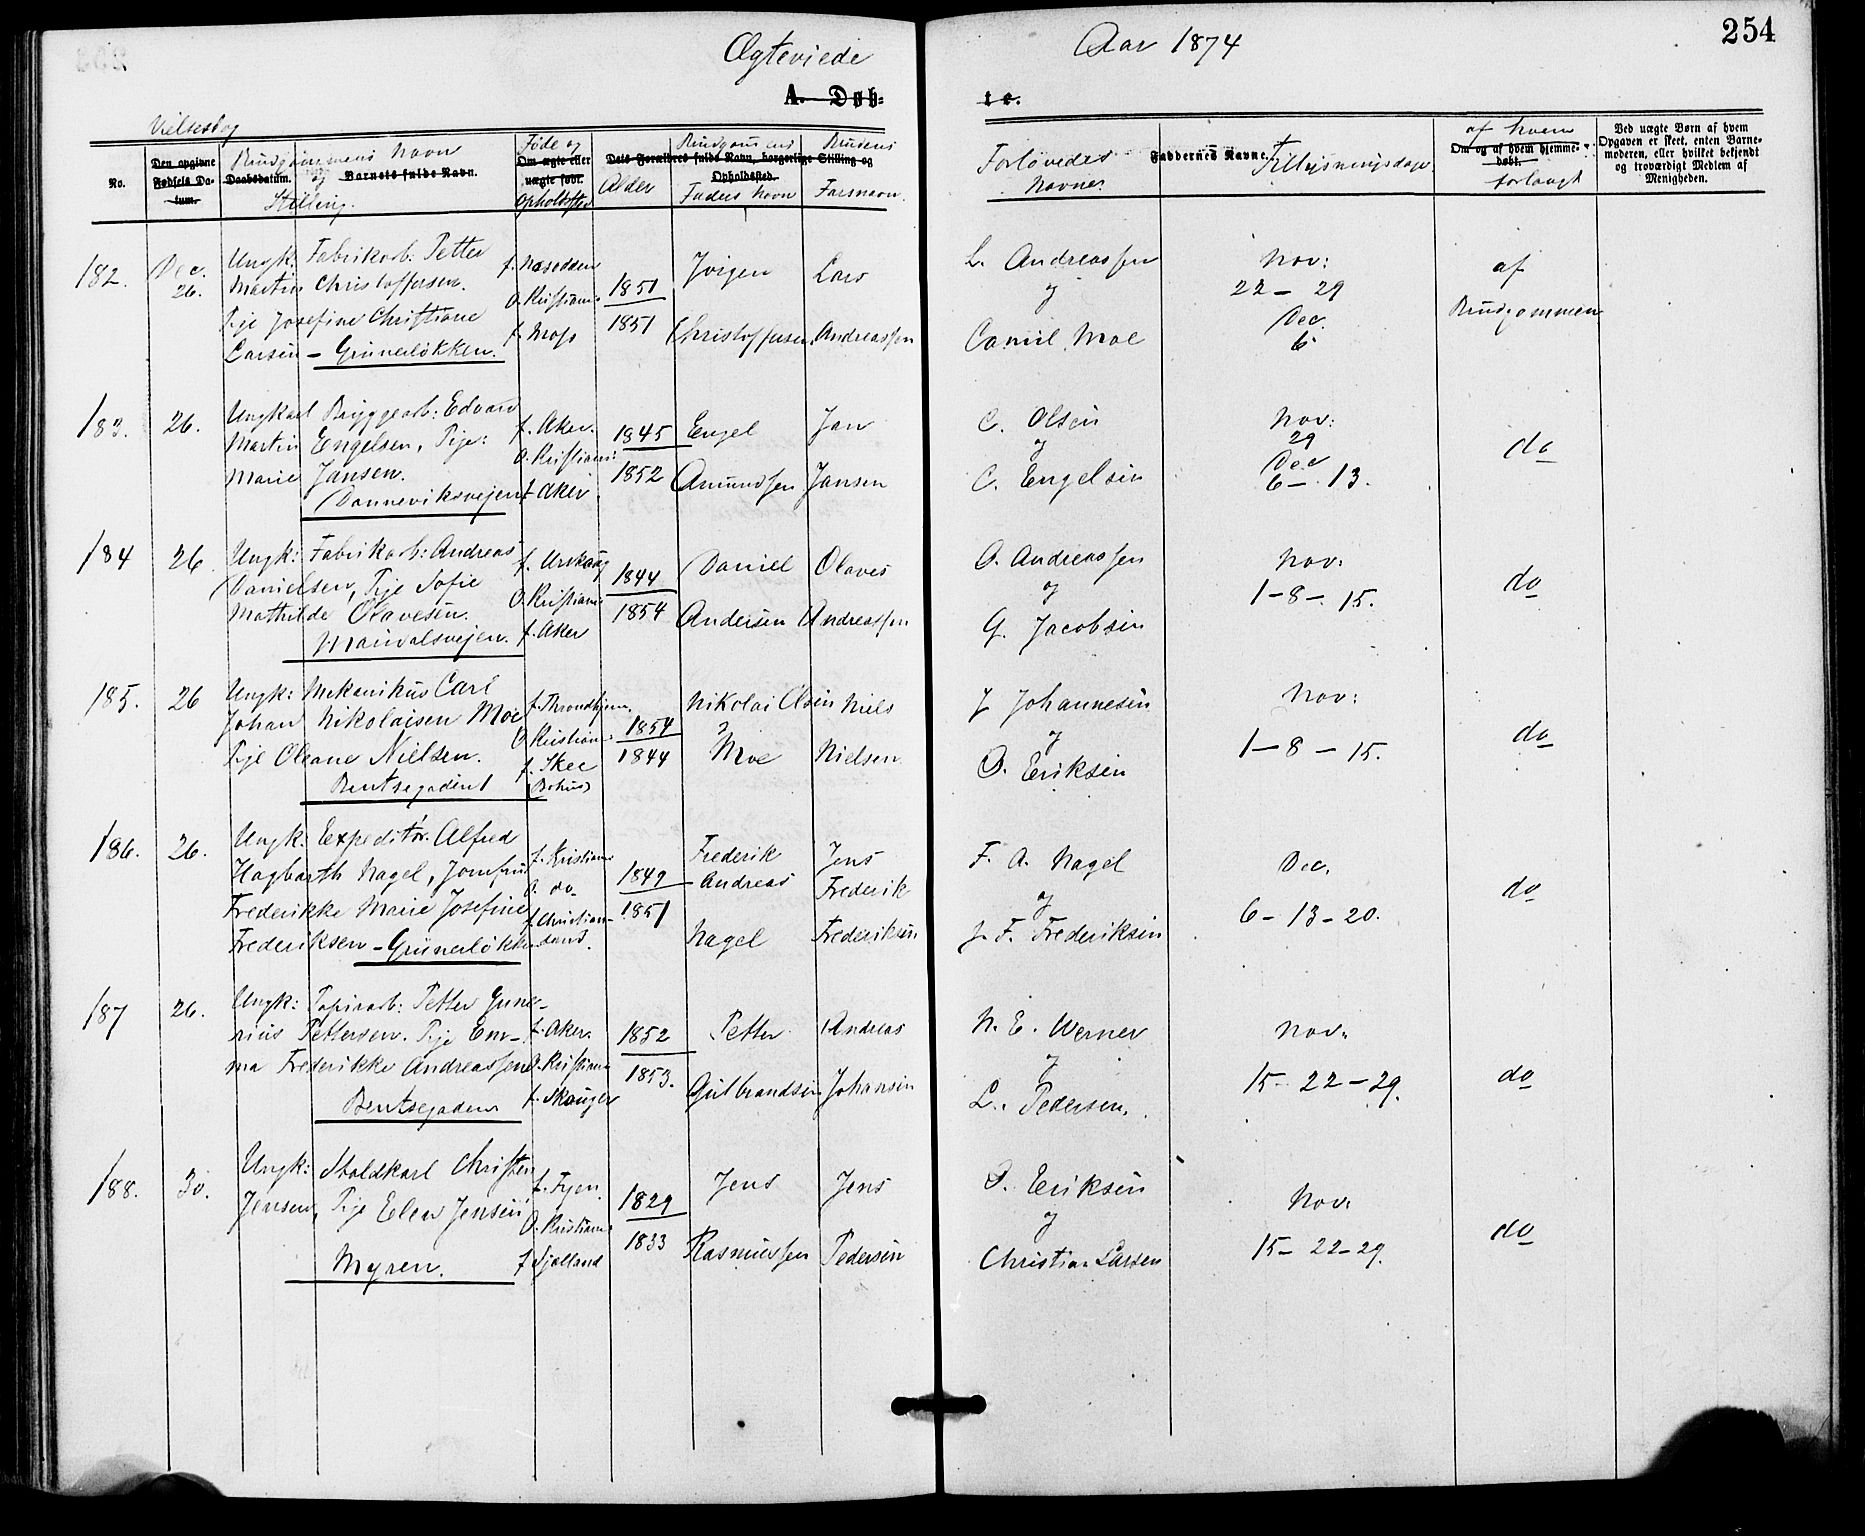 Ægteviede
Aar 1874
254
A. Døb-
te.
Vielsesdag
No.
Den opgivne
Fødsels Da-
tum.
Daabsdatum.
Brudgommens Navn
og
Stilling.
Barnets fulde Navn.
Føde og
Om ægte eller
uægte født.
Opholdssted
Dets Forældres fulde Navn, borgerlige Stilling og
Opholdssted.
Alder
Brudgommens
Faders Navn
Brudens
Farsnavn.
Forlovedes
Navne.
Faddernes Navne.
Tillysningsdage.
af hvem
Om og af hvem hjemme-
døbt.
forlangt
Ved uægte Børn af hvem
Opgaven er skeet, enten Barne-
moderen, eller hvilket bekjendt
og troværdigt Medlem af
Menigheden.
182. Dec. 26.
Ungk. Fabrikarb: Petter
Martin Christoffersen.
Pige Josefine Christiane
Larsen – Grünerløkken.
f. Næsodden
O. Kristiania
f. Moss
1851
1851
Jørgen
Christoffersen
Lars
Andreassen
L. Andreassen
og
Camil. Moe
Nov:
22 – 29
Dec.
6
af
Brudgommen
183. 26.
Ungkarl Bryggearb: Edvard
Martin Engelsen, Pige:
Marie Jansen.
Danneviksvejen
f. Aker.
O. Kristiania
f Aker
1845
1852
Engel
Amundsen
Jan
Jansen
C. Olsen
og
C. Engelsen
Nov:
29
Dec
6 – 13.
do
184 26.
Ungk: Fabrikarb: Andreas
Danielsen, Pige Sofie
Mathilde Olavesen.
Maridalsvejen.
f. Urskoug
O. Kristiania
f. Aker
1844
1854
Daniel
Andersen
Olaves
Andreassen
O. Andreassen
og
G. Jacobsen
Nov:
1 – 8 – 15.
do
185. 26
Ungk: Mekanikus Carl
Johan Nikolaisen Moe
Pige Oleane Nielsen.
Bentsegaden
f. Throndhjem.
O. Kristiania
f. Skee
(Bohus)
1854
1844
Nikolai Olsen
Moe
Niels
Nielsen
J Johannesen
og
O. Eriksen
Nov:
1 – 8 – 15.
do
186. 26.
Ungk. Expeditør. Alfred
Hagbarth Nagel, Jomfru
Frederikke Marie Josefine
Frederiksen – Grünerløkken
f. Kristiania
O. do.
f. Christian-
sand.
1849
1851
Frederik
Andreas
Nagel
Jens
Frederik
Frederiksen
F. A. Nagel
og
J. F. Frederiksen
Dec.
6 – 13 – 20.
do
187 26.
Ungk: Papirarb: Petter Gune-
rius Pettersen. Pige Em-
ma Frederikke Andreassen
Bentsegaden
f. Aker.
O. Kristiania
f. Skouger
1852
1853.
Petter
Gulbrandsen
Andreas
Johansen
N. E. Werner
og
L. Pedersen.
Nov.
15 – 22 – 29.
do
188. 30.
Ungk: Staldkarl Christen
Jensen, Pige Elen Jensen
Myren.
f. Fyen.
O. Kristiania
f Sjælland
1829
1833
Jens
Rasmussen
Jens
Pedersen
O. Eriksen
og
Christian Larsen
Nov.
15 – 22 – 29.
do